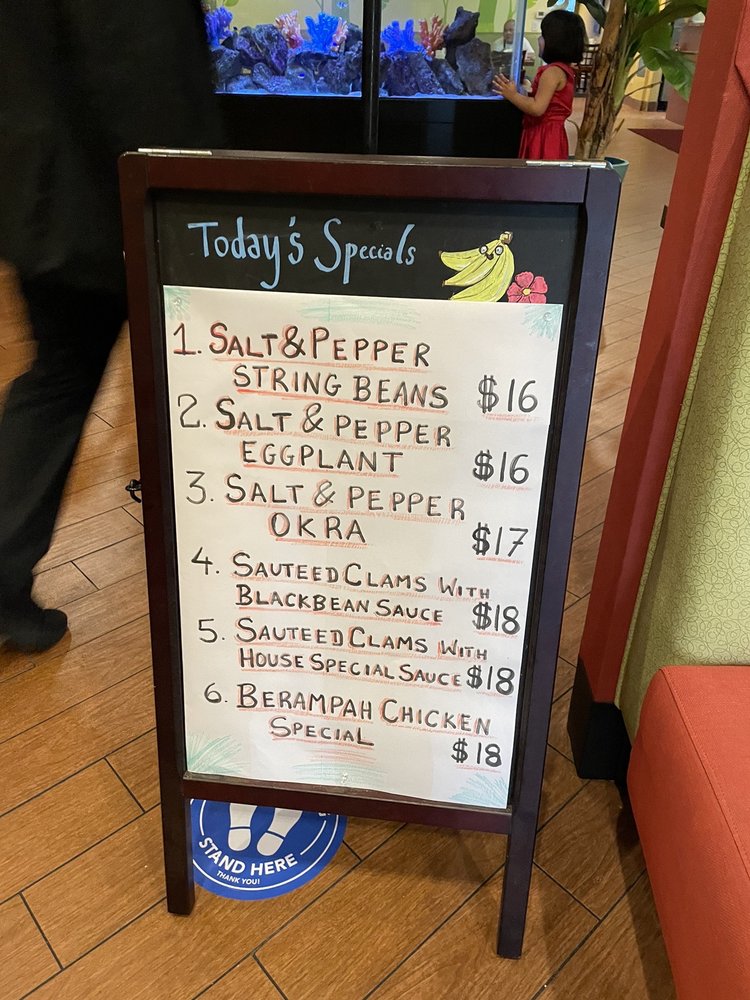 Today's Specials
1. SALT & PEPPER
STRING BEANS $16
2. SALT & PEPPER
EGGPLANT $16
3. SALT & PEPPER
OKRA $17
4. SAUTEED CLAMS WITH
BLACKBEAN SAUCE $18
5. SAUTEED CLAMS WITH
HOUSE SPECIAL SAUCE $18
6. BERAMPAH CHICKEN
SPECIAL $18
STAND HERE
THANK YOU!